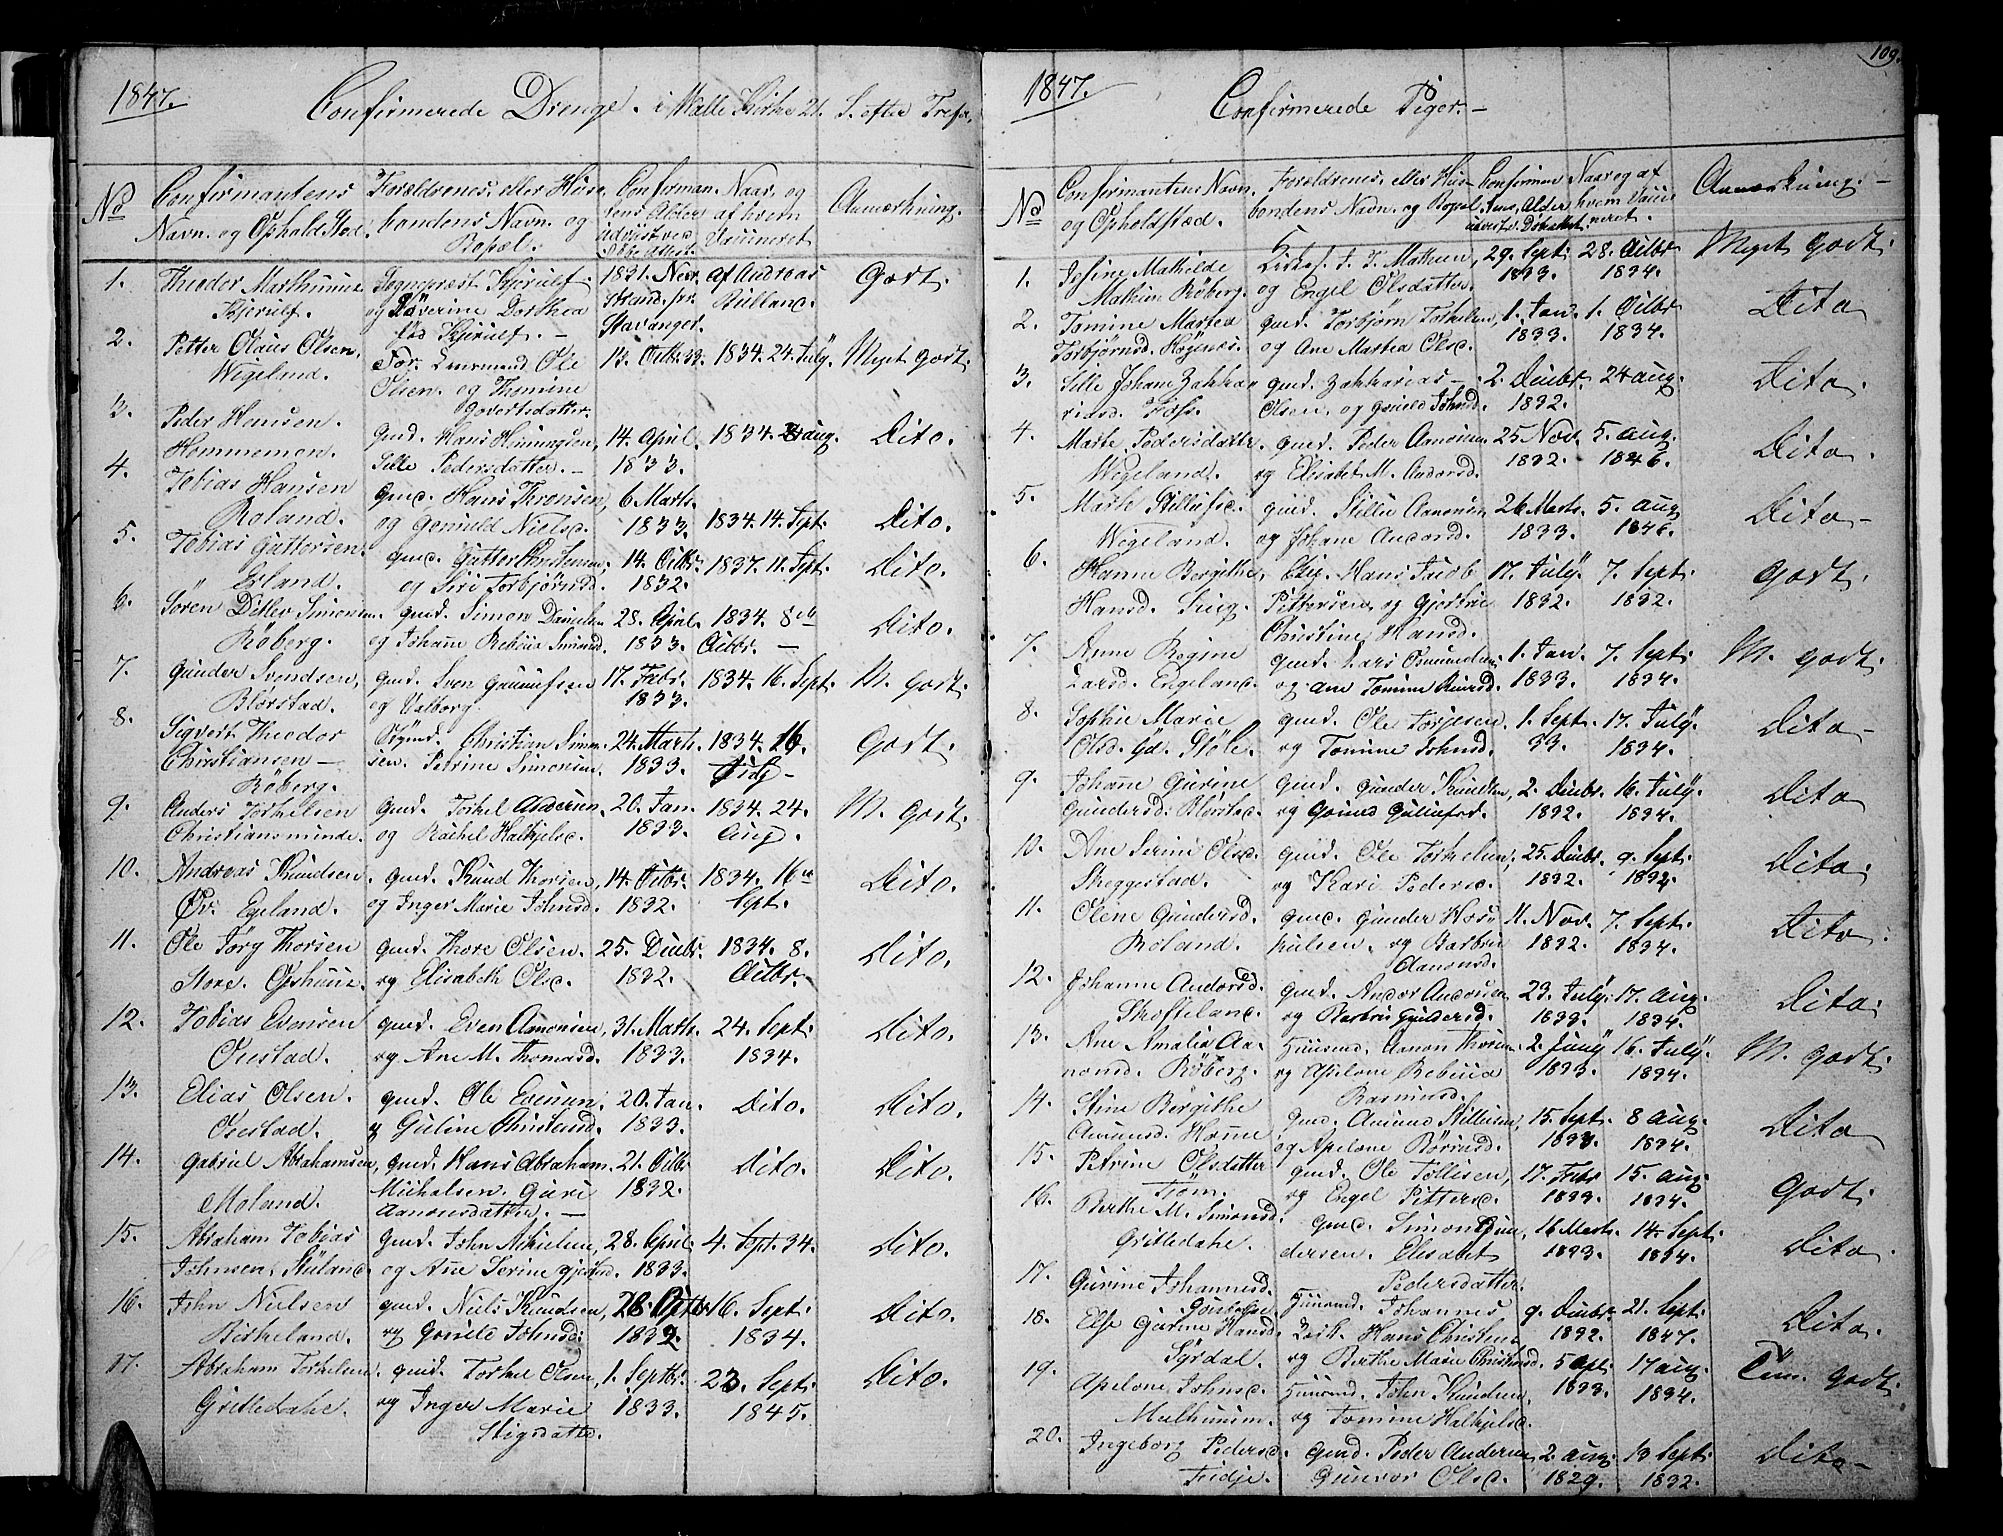 1847.
Confirmerede Drenge. i Halle Kirke 21. S. efter Trefo.
No
Confirmantens
Navn og Ophold Sted
Forældrenes, eller Hus-
bondens Navn og
Bopæl.
Confirman
tens Alder
udviist ved
Døbe Attest
Naar, og
af hvem
Vaccineret
Anmærkning.
1.
Theodor Marthinius
Kjerulf.
Sogneprest Kjerulf
og Severine Dorthea
fød Kjerulf. —
1831. Nov.
Strand. pr.
Stavanger.
af Andreas
Godt.
2.
Petter Olaus Olsen.
Wigeland.
For. Lensmand Ole
Olsen og Thomine
Govertsdatter.
13. Octbr 33.
1834. 24. July.
Meget godt.
3.
Peder Hansen.
Hommemon.
Gmd. Hans Henningsen,
Sille Pedersdatter. —
14. April
1833.
1834. aug.
Dito.
4.
Tobias Hansen
Roland.
Gmd. Hans Thronsen,
og Gunuld Nielsd.
6 Marts.
1833.
1834. 14. Sept.
Dito.
5.
Tobias Guttorsen.
Erland.
gmd. Guttor Christensen
og Siri Torbjørnsd.
14. Octbr.
1832.
1837. 11. Sept.
Dito.
6.
Søren Ditlev Simonsen
Røberg.
gmd. Simon Danielsen
og Johanne Rebecca Simonsd.
28. April
1833.
1834. 8de
Octbr. —
Dito.
7.
Gunder Svendsen,
Blørstad.
gmd. Sven Gunnufsen
og Valborg
17. Febr.
1833.
1834. 16. Sept.
M. godt.
8.
Sigvert Theodor
Christiansen —
Røberg.
Christian Simon-
sen. Petrine Simonsen.
24. Marts
1833.
1834. 16.
July —
Godt.
9.
Anders Torkelsen
Christiansminde.
gmd. Torkel Andersen,
og Rachel Halkjelsd.
20. Jan.
1833.
1834. 24.
Aug.
M. godt.
10.
Andreas Knudsen.
Øv. Egeland.
gmd. Knud Thorsen,
og Inger Marie Johnsd.
14. Octbr.
1832.
1834. 16de
Sept.
Dito.
11.
Ole Jørg Thorsen
Store. Opshuus.
gmd. Thore Olsen.
og Elisabeth Olsd.
25. Decbr.
1832.
1834. 8.
Octbr.
Dito.
12.
Tobias Evensen
Oiestad.
gmd. Even Aanonsen,
og Ane M. Thomasd.
31. Marts.
1833.
24. Sept.
1834.
Dito.
13.
Elias Olsen.
Oiestad.
gmd. Ole Evensen.
og Guline Christensd.
20. Jan.
1833.
Dito.
Dito.
14.
Gabriel Abrahamsen,
Moland.
gmd. Hans Abraham
Michalsen. Guri
Aanonsdatter. —
21. Octbr
1832.
Dito.
Dito.
15.
Abraham Tobias
Johnsen.
gmd. John
og Ane Serine
28. April
1833.
4. Sept. 34.
Dito.
16.
John Nielsen
Birkeland.
gmd. Niels Knudsen,
og Gunild Johnsd.
28. Octbr
1832.
16. Sept.
1834.
Dito.
17.
Abraham Torkelsen.
Grislledahl.
gmd. Torkel Olsen,
og Inger Marie
Stigsdatter.
1. Septbr.
1833.
23. Sept.
1845.
Dito.
109.
1847.
Confirmerede Piger. —
No
Confirmantens Navn
og Opholdsted.
Forældrenes, eller Hus-
bondens Navn. og Bopæl
Confirman
tens, Alder
udviist v. Døbeattest
Naar og af
hvem Vacci
neret.
Anmærkning. —
1.
Josine Mathilde
Mathisen Røberg.
Mathisen,
og Engel Olsdatter.
29. Sept.
1833.
28. Octbr
1834.
Meget godt.
2.
Tomine Martea
Torbjørnsd. Høgenes.
gmd. Torbjørn Torkelsen,
og Ane Martea Olsd.
1. Jan.
1833.
1. Octbr.
1834.
Dito
3.
Sille Johane Zakka-
riasd. Foss.
gmd. Zakkarias —
Olsen. og Gunild Johnsd.
2. Decbr.
1832.
24 aug.
Dito.
4.
Marte Pedersdatter.
Wigeland.
gmd. Peder Aanonsen
og Elisabet M. Andersd.
25. Nov.
1832.
5. aug.
1846.
Dito.
5.
Marte Stillufsd.
Wigeland.
gmd. Aanonsen
og Johane
26. Marts.
1833.
5. aug
1846.
Dito —
6.
Hanne Bergithe
Hansd.
Hans Jacob
Pettersen, og
Christine Hansd.
17. July
1832.
7. Sept.
1832.
godt.
7.
Anne Regine
Larsd. Engeland.
gmd. Lars
og Ane Tomine
1. Jan.
1833.
7. Sept.
1834.
M. godt.
8.
Sophie Marie
Olsd. Gd. Støle.
gmd. Ole Torjesen
og Tomine Johnsd.
1. Sept.
33.
17. July
1834.
Dito —
9.
Johane Gurine
Gundersd. Blørstad.
gmd. Gunder Knudsen,
og
2. Decbr.
1832.
16. July
1834.
Dito
10.
Ane Serine Olsd.
Skeggestad.
gmd. Ole Torkelsen,
og Kari Pedersd.
25. Decbr.
1832.
9. Sept.
1832.
Dito.
11.
Oline Gundersd.
Roland.
gmd. Gunder
og Barbro
Aanonsd.
11. Nov.
1832.
7. Sept.
1834.
Dito.
12.
Johanne Andersd.
Skofteland.
gmd. Anders Andersen
og Barbro Gundersd.
23. July.
1833.
17. aug
1834.
Dito.
13.
Ane Amalia Aa-
nonsd. Røberg.
Huusmd. Aanon Thorsen.
og Apelone Rebecca
Rasmusd.
2. Juny
1833.
16. July
1834.
M. godt.
14.
Stine Bergithe
gmd.
og Apelone
15. Sept.
1833.
8 aug.
1834.
Dito
15.
Petrine Olsdatter
Trøm.
gmd. Ole Tollisen,
og Engel Pittersd.
17. Febr
1833.
15. aug.
1834.
Godt.
16.
Berthe M. Simonsd.
Grislledahl.
gmd. Simon Gun-
dersen. Elisabet
Pedersdatter.
16 Marts.
1833.
14. Sept.
1834.
Dito
17.
Gurine Johannesd.
Huusmd. Johannes
9. Decbr.
1832.
21. Sept.
1847.
Dito.
18.
Else Gurine Hansd.
Syrdal.
Hans Christensen
og Berthe Marie Christensd.
5 Apl.
1833.
17 aug.
1834.
Tem. godt.
19.
Apelone Johnsd.
Huusmd. John Knudsen,
og Tomine Halkjelsd.
20.
Ingeborg Pedersd.
Fidje.
gmd. Peder Andersen
Gunvor Olsd.
2 aug.
1829.
13 Sept.
1832.
Dito —